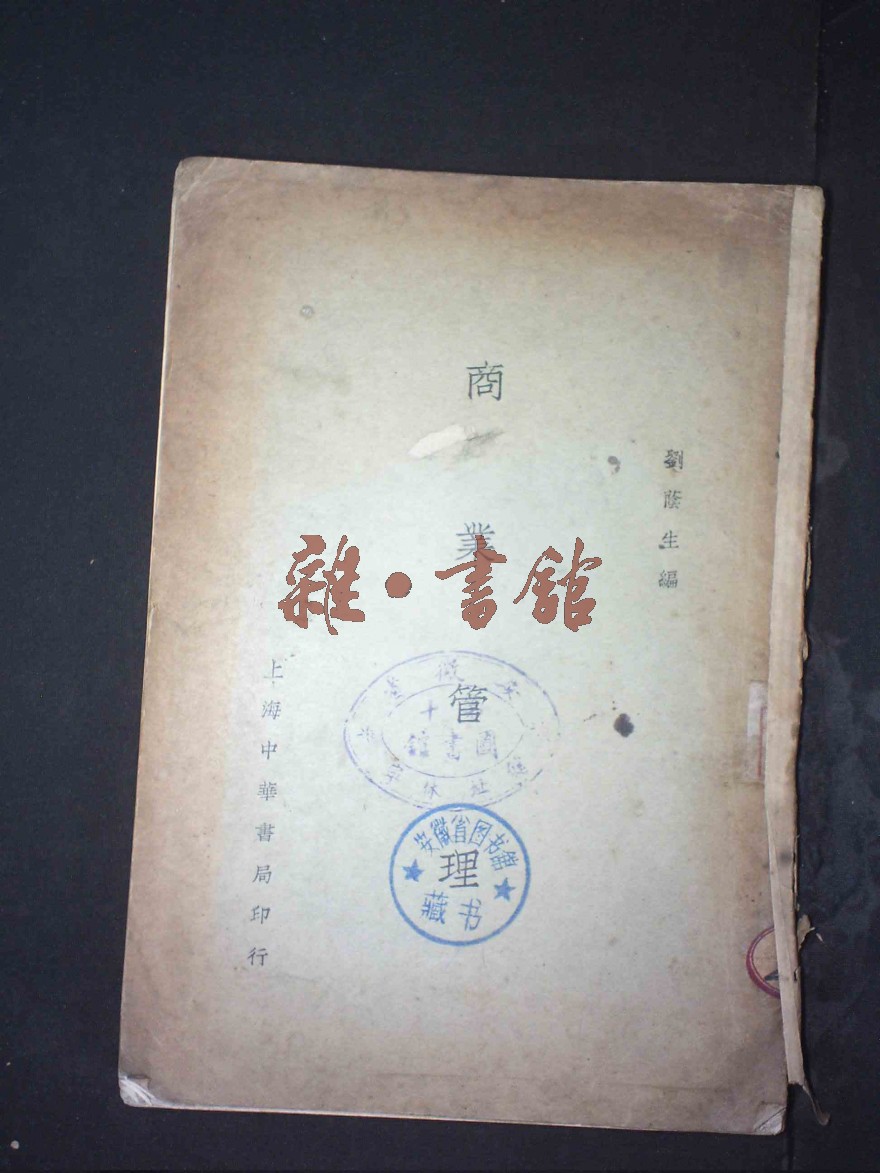 劉蔭生編
商業管理
上海中華書局印行
雜·書館
十
圖書館
安徽省图书馆
藏书